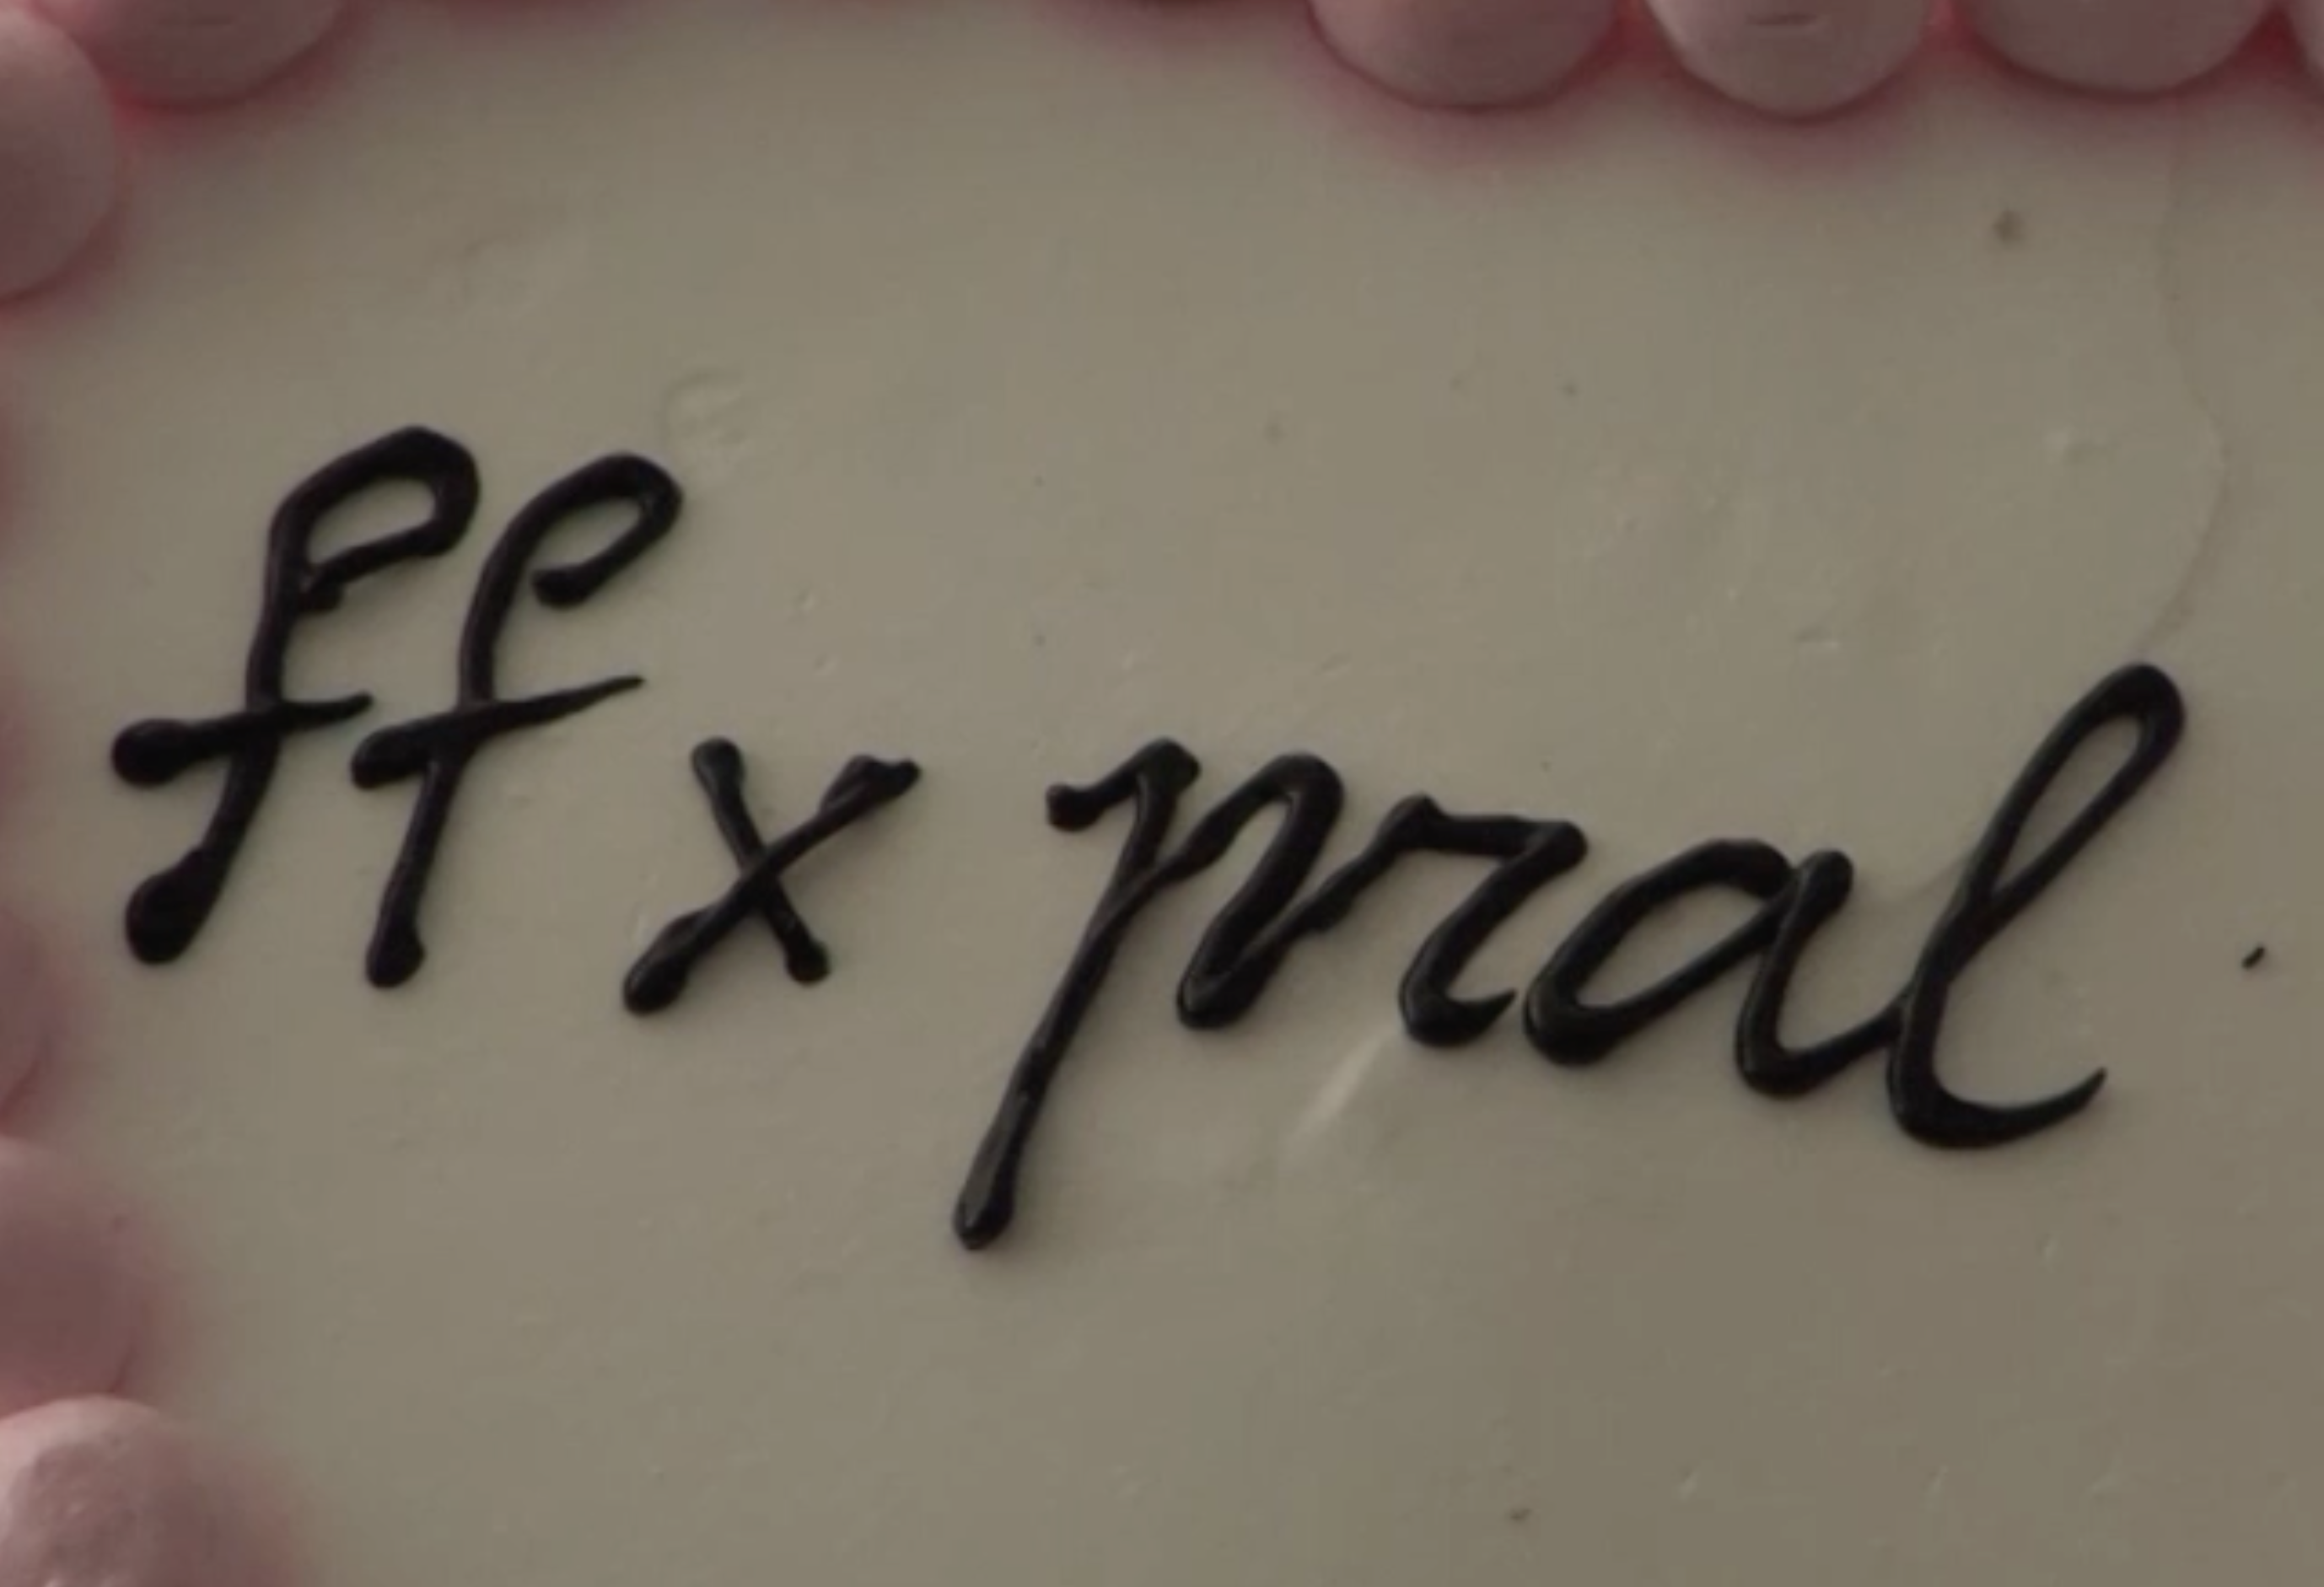 ff x pral